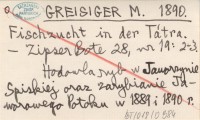 GREISIGER M. 1890.
Fischzucht in der Tátra.
— Zipser Bote 28, nr 19: 2-3.
Hodowla ryb w Jaworzynie
Spiskiej oraz zarybianie Ja-
worowego Potoku w 1889 i 1890 r.